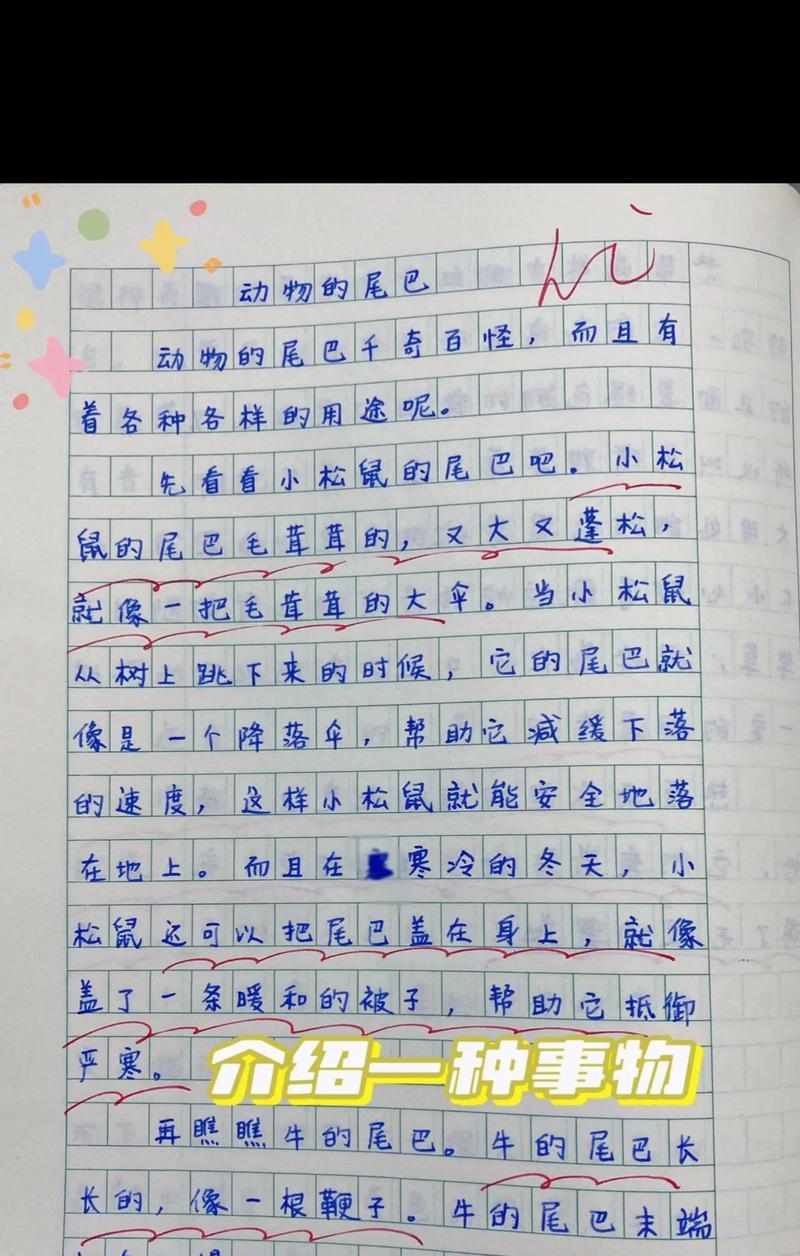 动物的尾巴
动物的尾巴千奇百怪，而且有
着各种各样的用途呢。
先看看小松鼠的尾巴吧。小松
鼠的尾巴毛茸茸的，又大又蓬松，
就像一把毛茸茸的大伞。当小松鼠
从树上跳下来的时候，它的尾巴就
像是一个降落伞，帮助它减缓下落
的速度，这样小松鼠就能安全地落
在地上。而且在寒冷的冬天，小
松鼠还可以把尾巴盖在身上，就像
盖了一条暖和的被子，帮助它抵御
严寒。
介绍一种事物
再瞧瞧牛的尾巴。牛的尾巴长
长的，像一根鞭子。牛的尾巴末端